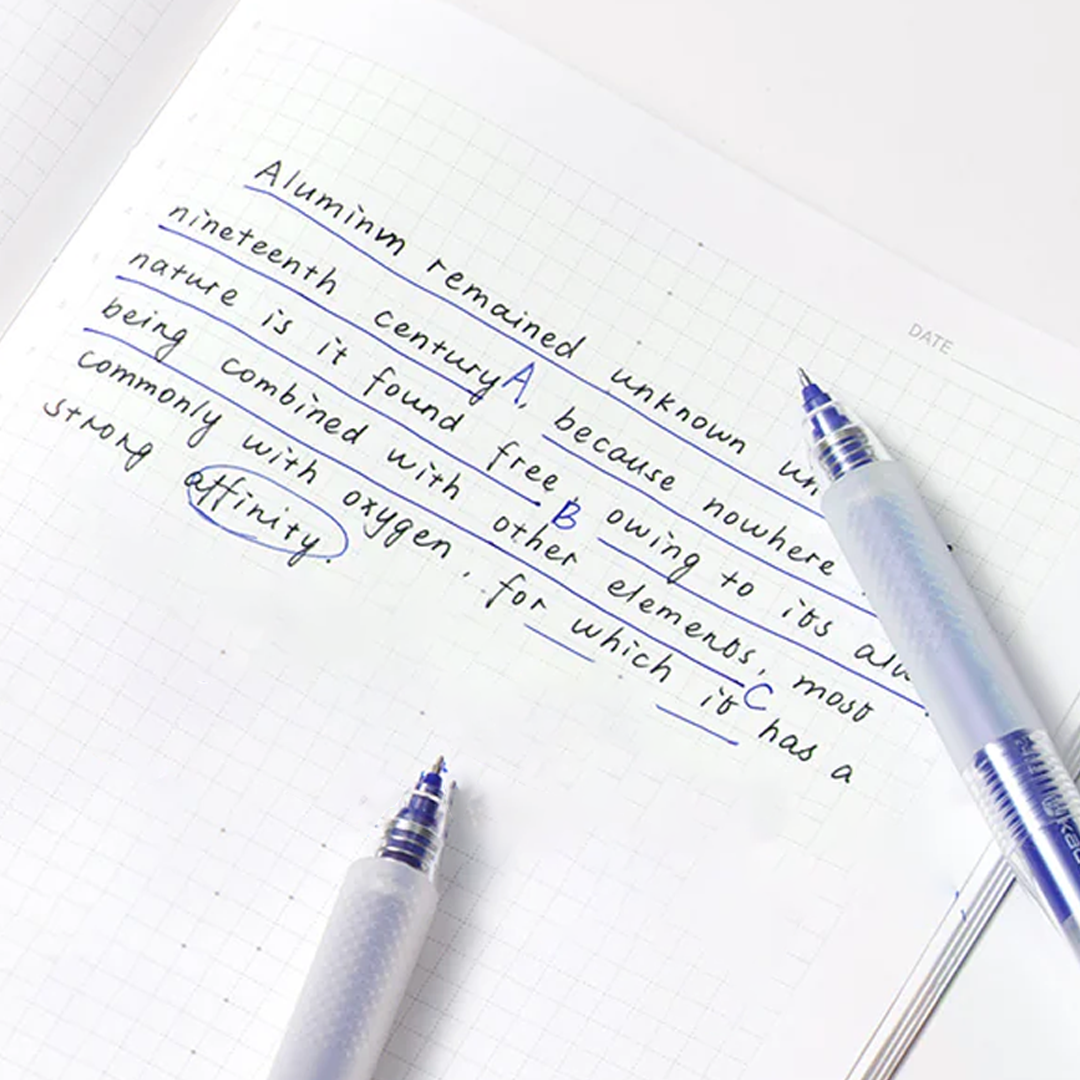 DATE
Aluminm remained unknown
nineteenth century A, because nowhere
nature is it found free, B owing to its
being combined with other elements, C most
commonly with oxygen, for which it has a
strong affinity.